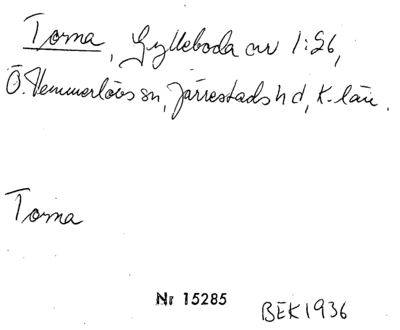 Torna, Gylleboda nr 1:26,
Ö. Vemmerlövs sn, Järrestads hd, K-län.
Torna
Nr 15285
BEK 1936